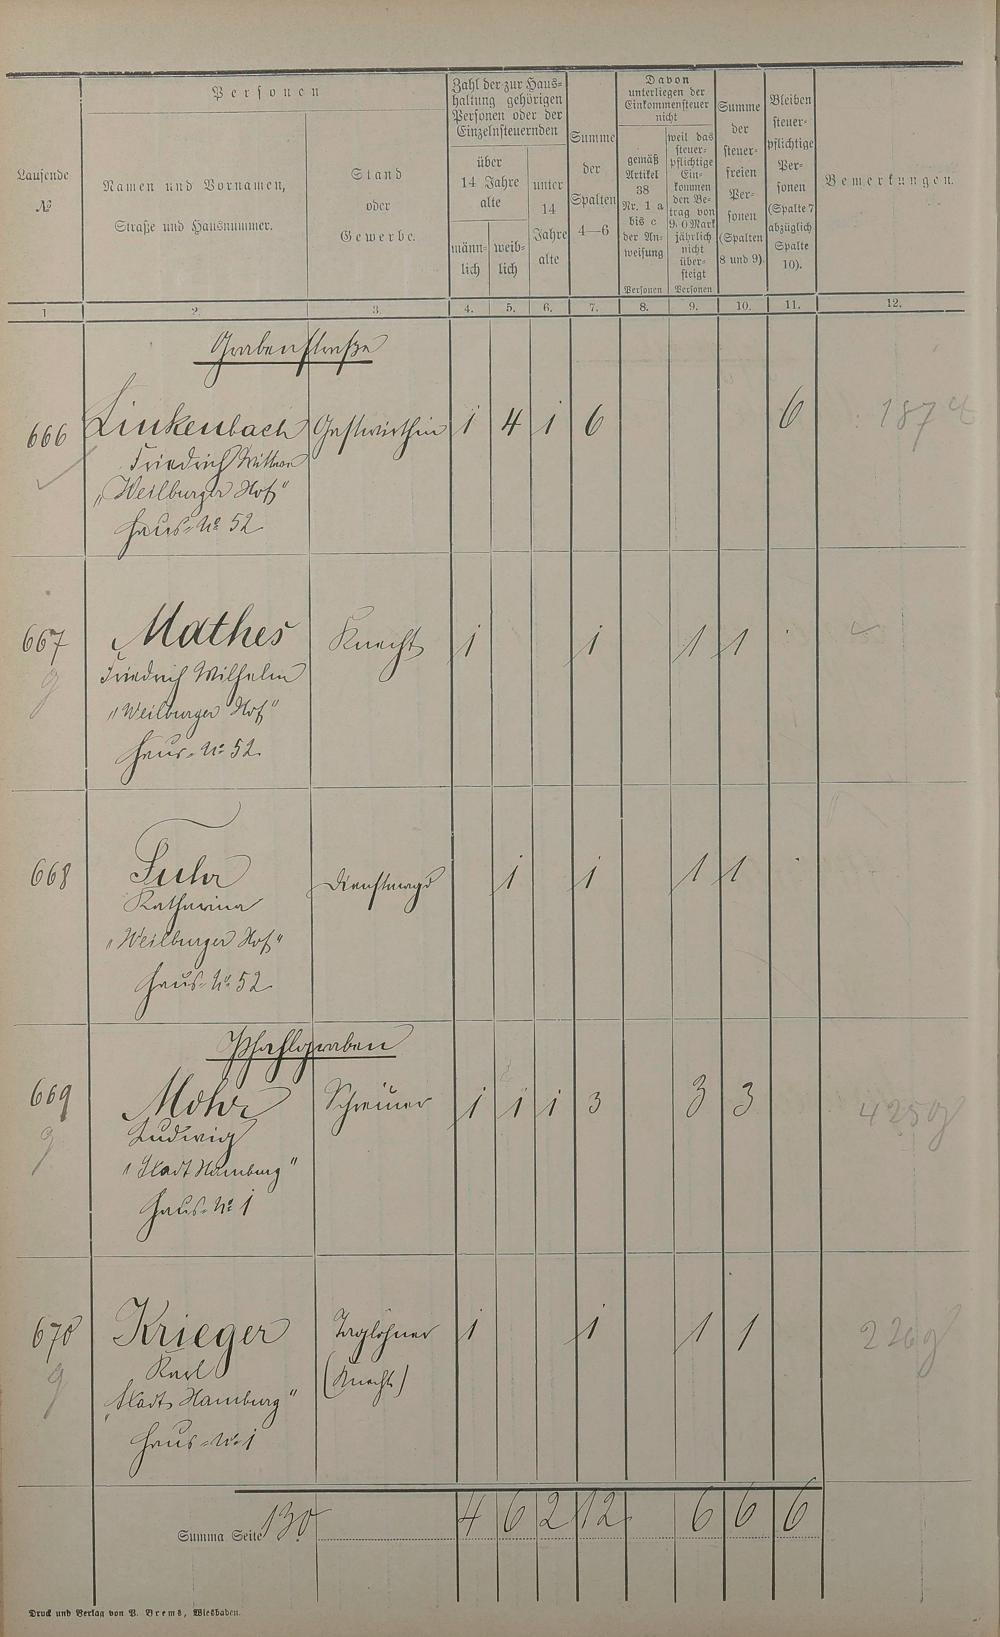 Laufende
№
Personen
Namen und Vornamen,
Straße und Hausnummer.
Stand
oder
Gewerbe.
Zahl der zur Haus-
haltung gehörigen
Personen oder der
Einzelnsteuernden
über
14 Jahre
alte
männ-
lich
weib-
lich
unter
14
Jahre
alte
Summe
der
Spalten
4—6
Davon
unterliegen der
Einkommensteuer
nicht
gemäß
Artikel
38
Nr. 1 a
bis c
der An-
weisung
Personen
weil das
steuer-
pflichtige
Ein-
kommen
den Be-
trag von
900 Mark
jährlich
nicht
über-
steigt
Personen
Summe
der
steuer-
freien
Per-
sonen
(Spalten
8 und 9).
Bleiben
steuer-
pflichtige
Per-
sonen
(Spalte 7
abzüglich
Spalte
10).
Bemerkungen.
1 2. 3. 4. 5. 6. 7. 8. 9. 10. 11. 12.
Grabenstraße
666 Linkenbach Gastwirthin 1 4 1 6 6 187
Friedrich Wittwe
"Weilburger Hof"
Haus-No 52
667 Mathes Knecht 1 1 1 1
g Friedrich Wilhelm
"Weilburger Hof"
Haus-No 52.
668 Fuhr Dienstmagd 1 1 1 1
Katharina
"Weilburger Hof"
Haus-No 52
Pfahlgraben
669 Mohr Schreiner 1 1 1 3 3 3 425g
g Ludwig
"Stadt Hamburg"
Haus-No 1
670 Krieger Taglöhner 1 1 1 1 226g
g Karl (Knecht)
"Stadt Hamburg"
Haus-No 1
Summa Seite 130 4 6 2 12 6 6 6
Druck und Verlag von P. Brems, Wiesbaden.